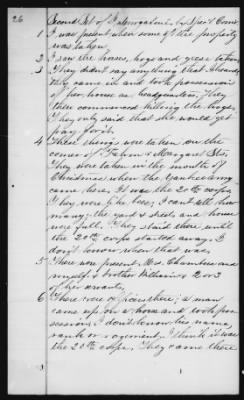 26
Second Set of Interrogatories by Spec'l Com'r
1 I was present when some of the property
was taken.
2 I saw the horses, hogs and geese taken
3 They didn't say anything that I heard,
They came in and took possession
of her house as headquarters. They
then commenced killing the hogs.
They only said that she would get
pay for it.
4 These things were taken on the
corner of & Margaret Sts.
They were taken in the month of
Christmas when the Yankee army
came here. It was the 20th corps.
They were like bees; I can't tell how
many; the yard & streets and house
were full. They staid there until
the 20th corps started away. I
don't know when that was.
5 There were present, Mrs. and
myself & brother William & 2 or 3
of her servants.
6 There were officers there; a man
came up on a horse and took pos-
session; I don't know his name,
rank or regiment. I think it was
the 20th corps. They came there